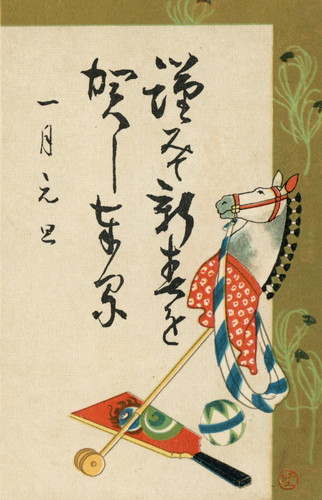 謹みて新春を
賀し奉る
一月元旦